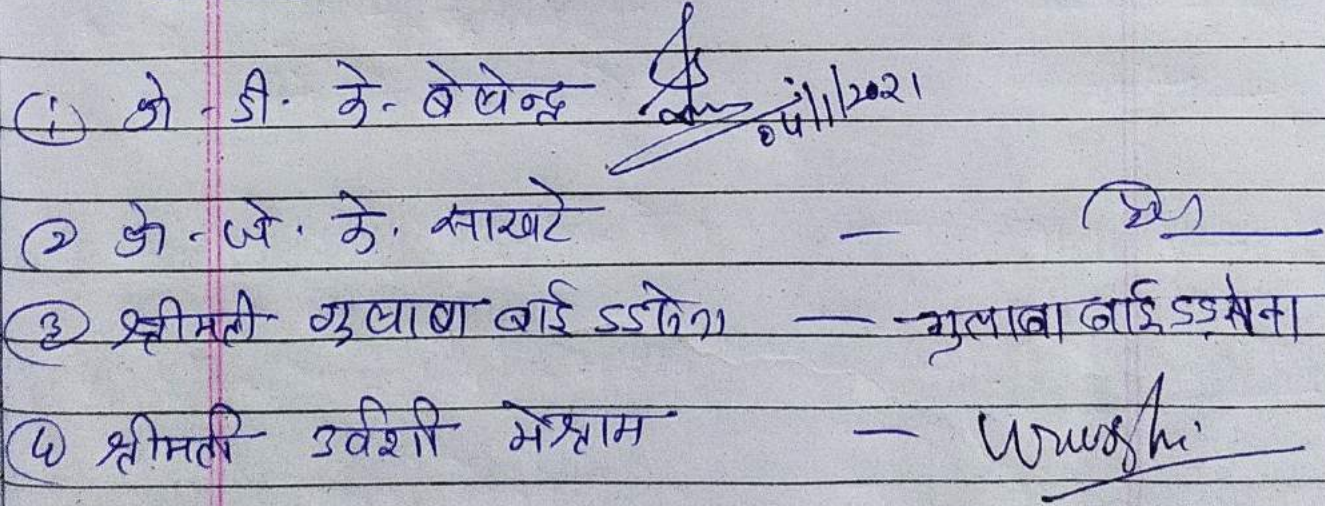 ① के. डी. के. बेलेन्द्र 04/1/2021
② के. जे. के. साखटे —
③ श्रीमती गुलाबा बाई डडसेना — गुलाबा बाई डडसेना
④ श्रीमती उर्वशी मेश्राम — Urvashi